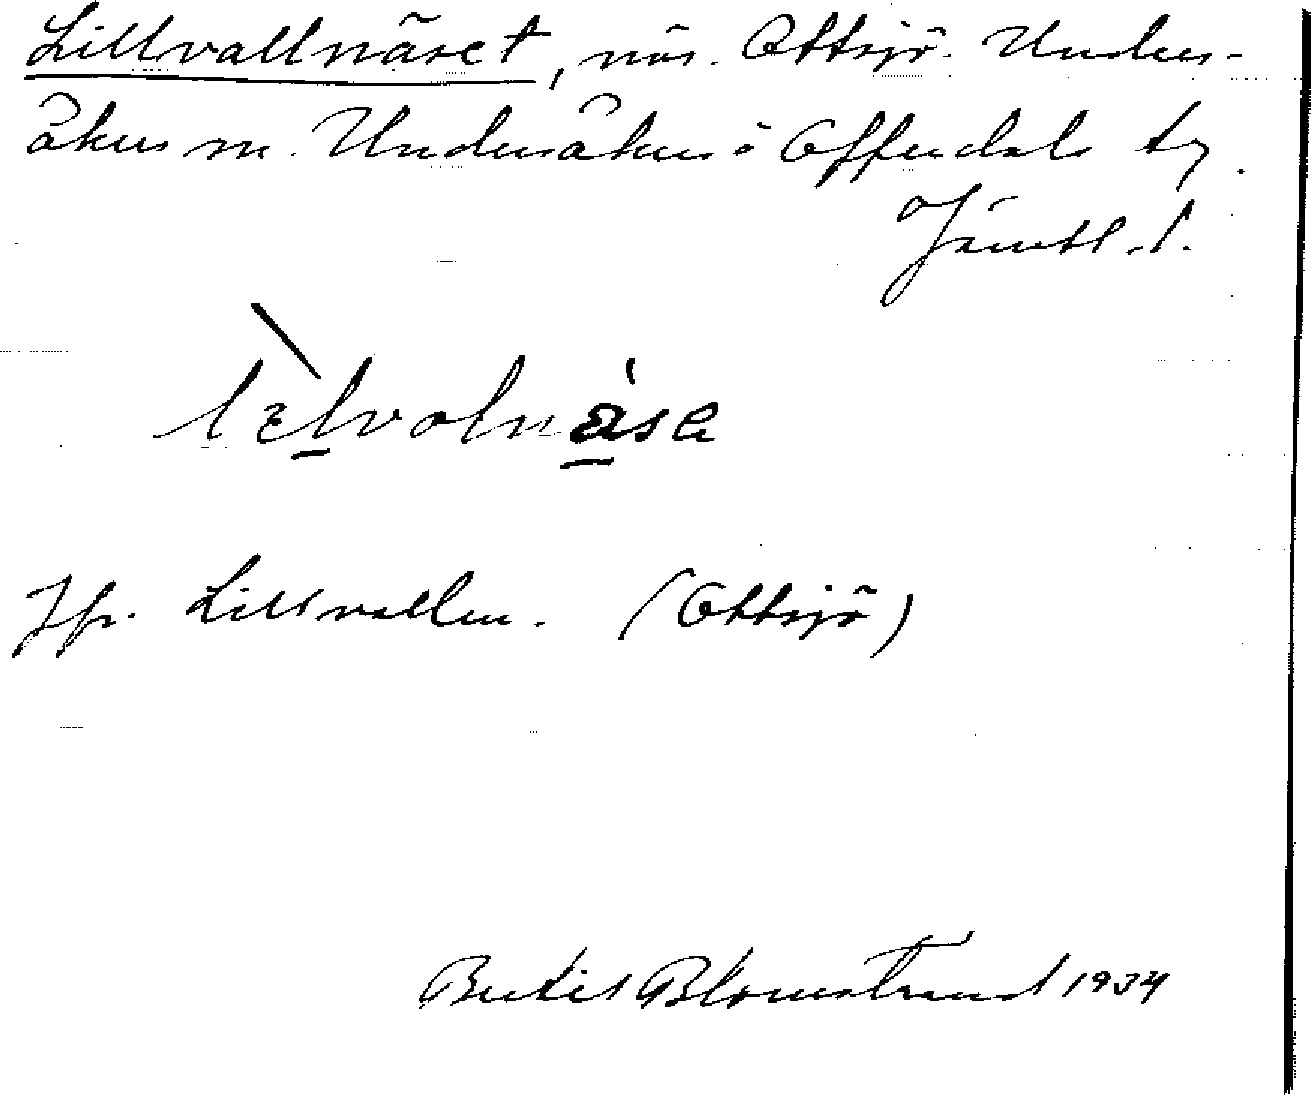 Lillvallnäset, näs. Ottsjö. Unders-
åkers sn. Undersåkers o Offerdals tg.
Jämtl. l.
lælvolnäse
Jfr. Lillvallen. (Ottsjö)
Bertil Blomstrand 1934